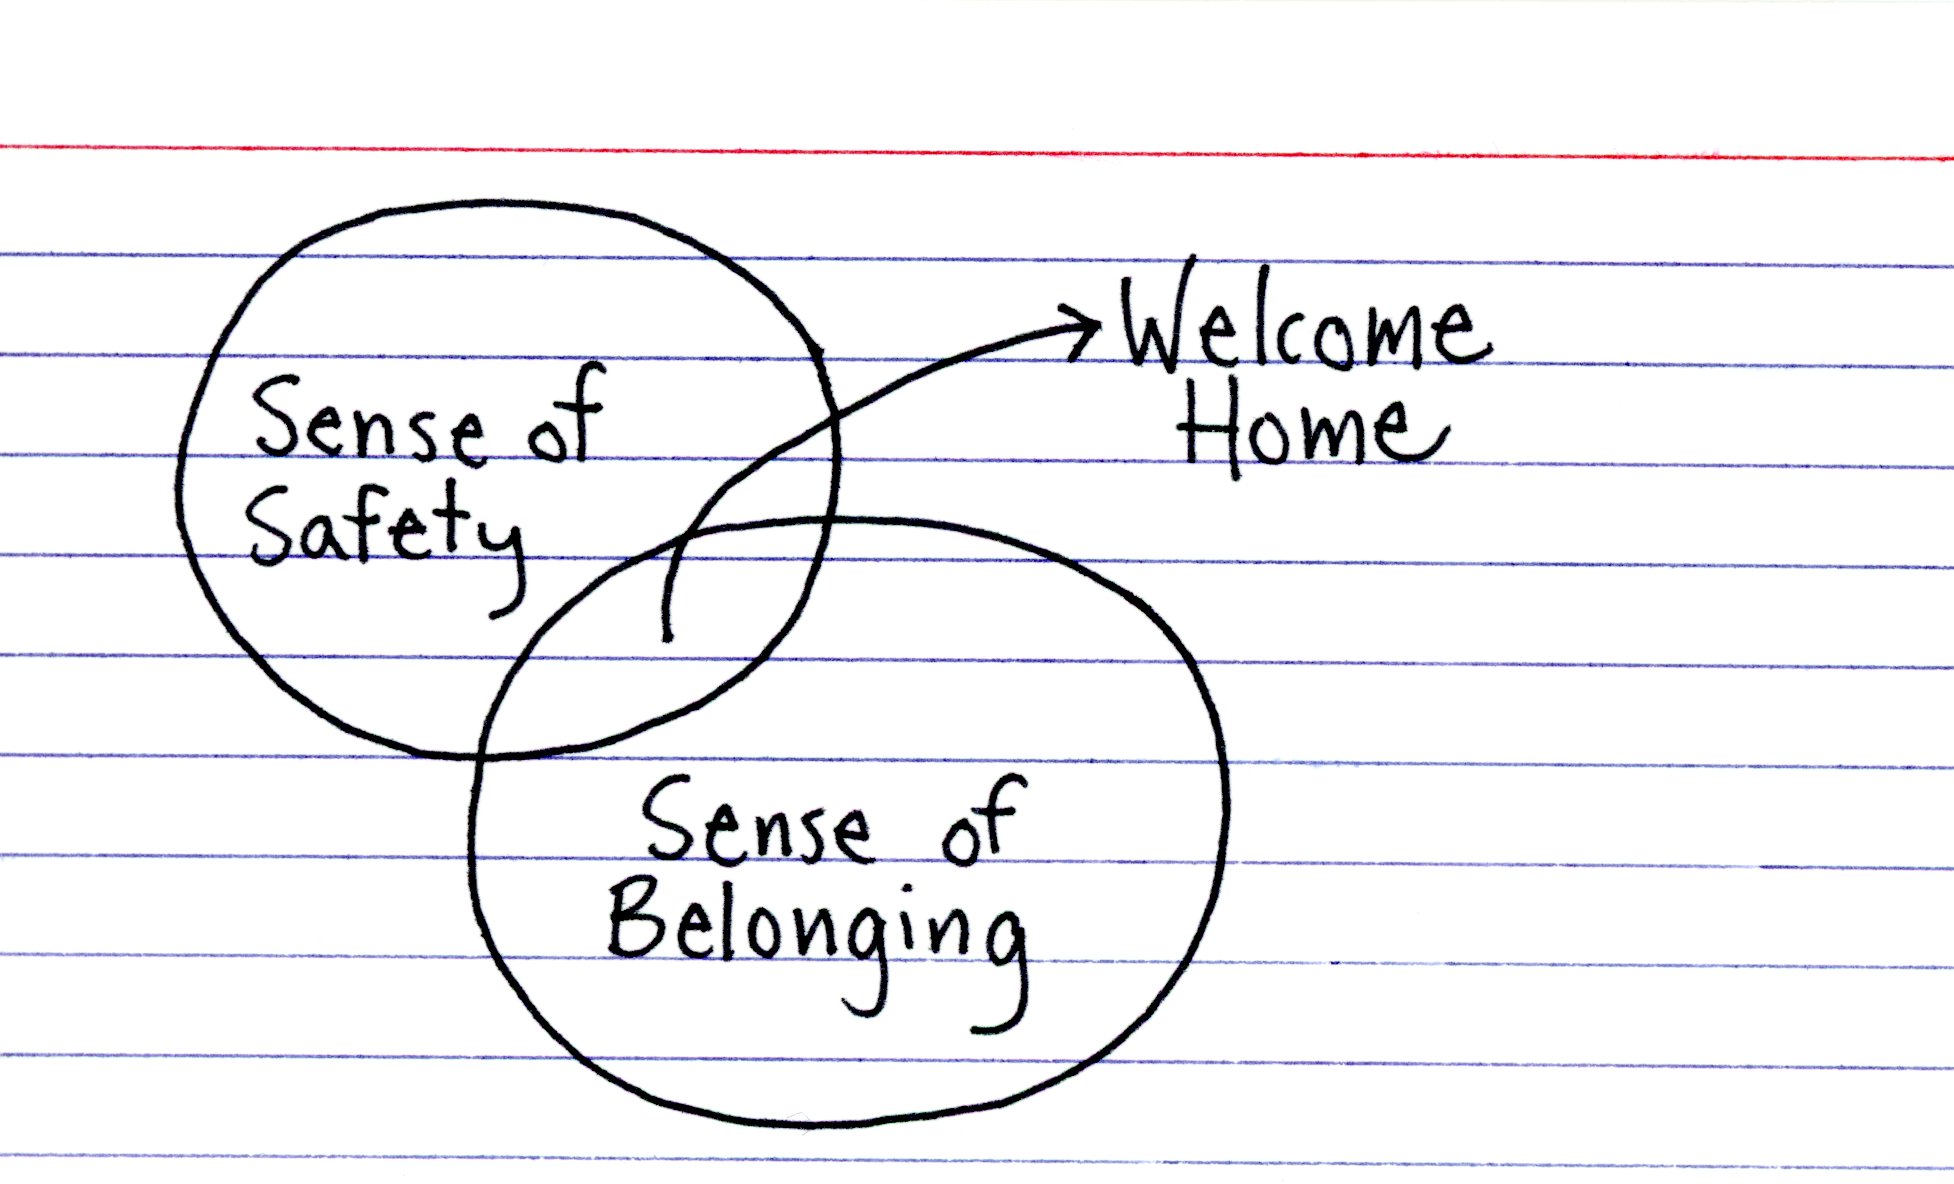 Sense of
Safety
Welcome
Home
Sense of
Belonging